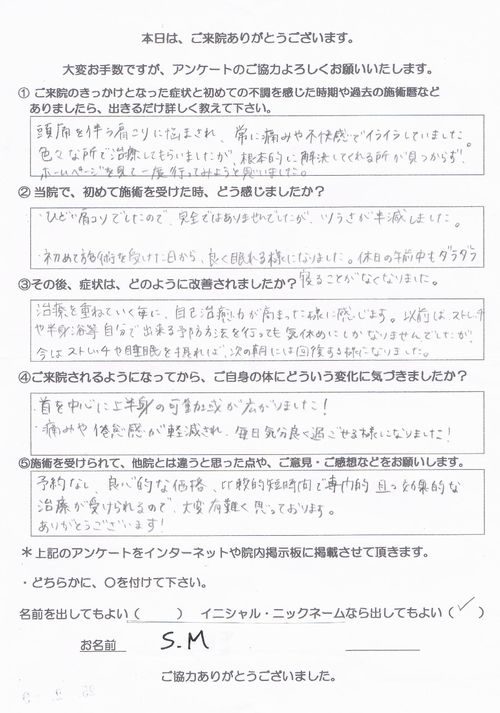 本日は、ご来院ありがとうございます。
大変お手数ですが、アンケートのご協力よろしくお願いいたします。
① ご来院のきっかけとなった症状と初めての不調を感じた時期や過去の施術暦など
ありましたら、出きるだけ詳しく教えて下さい。
頭痛を伴う肩こりに悩まされ、常に痛みや不快感でイライラしていました。
色々な所で治療してもらいましたが、根本的に解決してくれる所が見つからず、
ホームページを見て一度行ってみようと思いました。
② 当院で、初めて施術を受けた時、どう感じましたか？
・ひどい肩コリでしたので、完全ではありませんでしたが、ツラさが半減しました。
・初めて施術を受けた日から、良く眠れる様になりました。休日の午前中もダラダラ
寝ることがなくなりました。
③その後、症状は、どのように改善されましたか？
治療を重ねていく毎に、自己治癒力が高まった様に感じます。以前はストレッチ
や半身浴等自分で出来る予防方法を行っても気休めにしかなりませんでしたが、
今はストレッチや睡眠を摂れば、次の朝には回復する様になりました。
④ご来院されるようになってから、ご自身の体にどういう変化に気づきましたか？
・首を中心に上半身の可動域が広がりました！
・痛みや倦怠感が軽減され、毎日気分良く過ごせる様になりました！
⑤施術を受けられて、他院とは違うと思った点や、ご意見・ご感想などをお願いします。
予約なし、良心的な価格、比較的短時間で専門的且つ効果的な
治療が受けられるので、大変有難く思っております。
ありがとうございます！
＊上記のアンケートをインターネットや院内掲示板に掲載させて頂きます。
・どちらかに、○を付けて下さい。
名前を出してもよい（　　）　イニシャル・ニックネームなら出してもよい（✓）
お名前　S.M
ご協力ありがとうございました。